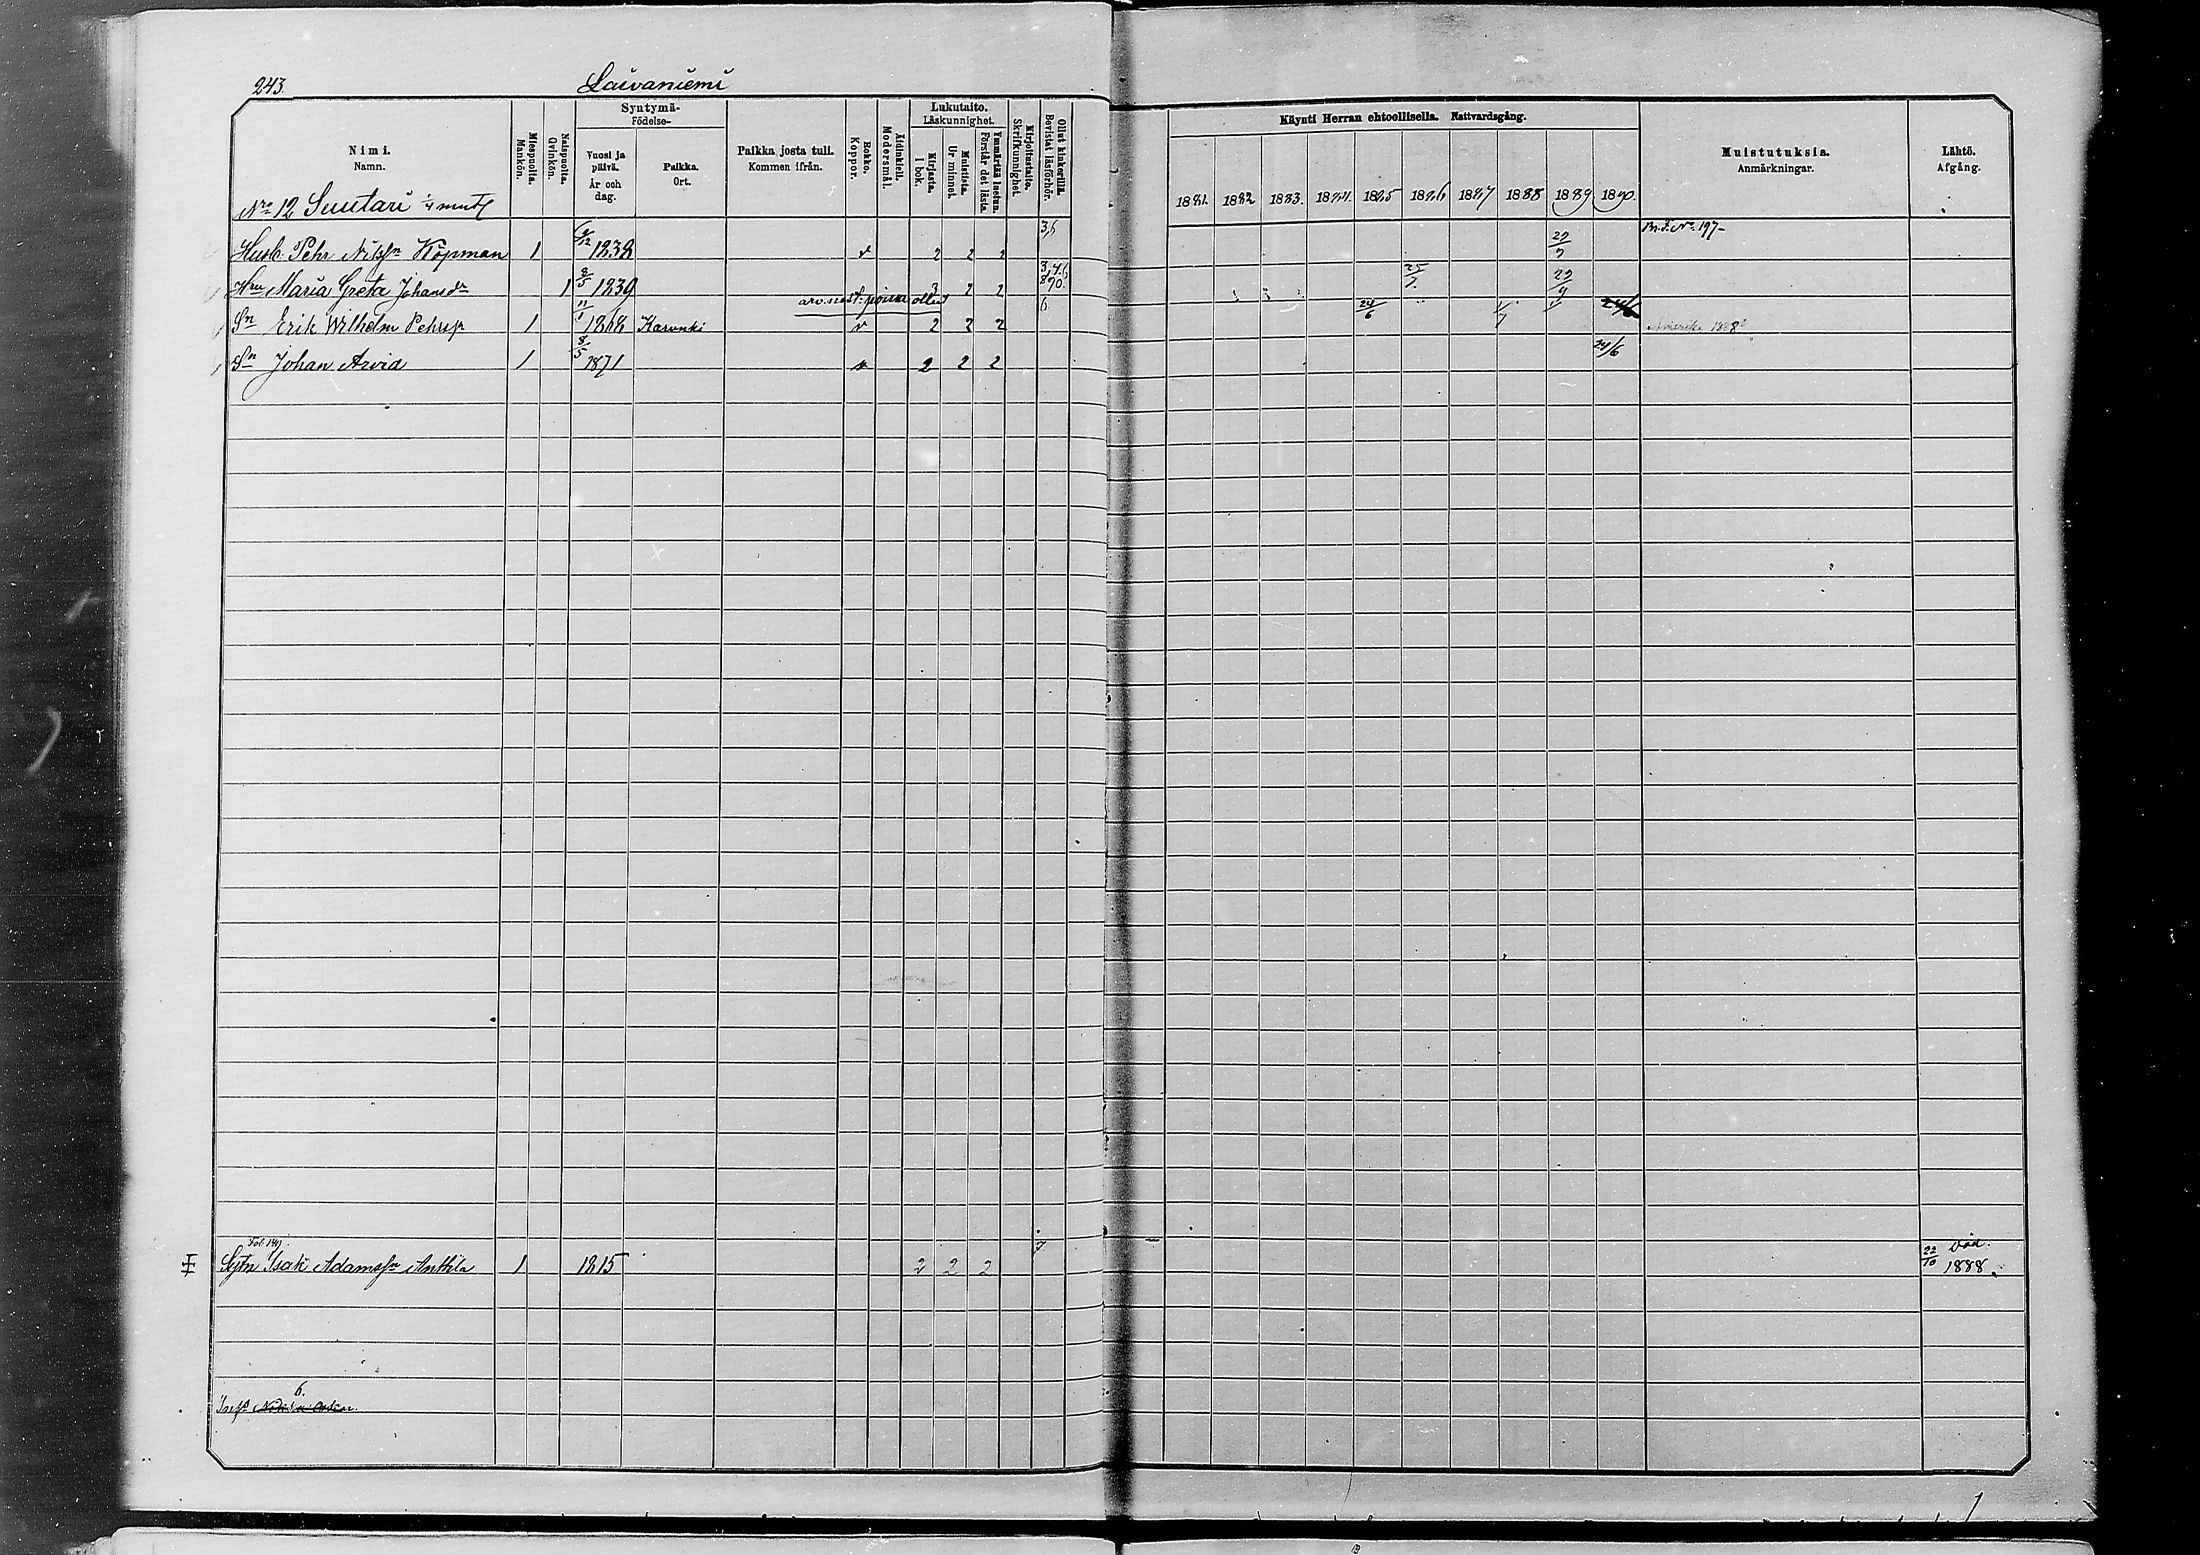 243.
Laivaniemi
Nimi.
Namn.
Miespuolta.
Mankön.
Naispuolta.
Qvinkön.
Syntymä-
Födelse-
Vuosi ja päivä.
År och dag.
Paikka.
Ort.
Paikka josta tuli.
Kommen ifrån.
Rokko.
Koppor.
Äidinkieli.
Modersmål.
Lukutaito.
Läskunnighet.
Kirjasta.
I bok.
Muistista.
Ur minnet.
Ymmärtää luetun.
Förstår det lästa.
Kirjoitustaito.
Skrifkunnighet.
Ollut kinkerillä.
Bevistat läsförhör.
Käynti Herran ehtoollisella. Nattvardsgång.
1881. 1882 1883. 1884. 1885 1886 1887 1888 1889 1890.
Muistutuksia.
Anmärkningar.
Lähtö.
Afgång.
No 12 Suutari 1/4 mantl
Husb. Pehr Nilsson Köpman 1 1838 v 2 2 2 3,6
Hru Maria Greta Johansdr 1 8/5 1839 3 2 2 25/7 29/9
Sn Erik Wilhelm Pehrss 1 11/1 1868 Karunki v 2 2 2 6 24/6 1/7
Sn Johan Arvid 1 8/5 1871 v 2 2 2 24/6
Fol. 141.
Sytn. Isak Adamssn Anttila 1 1815 2 2 2 7 22/10 död. 1888.
6.